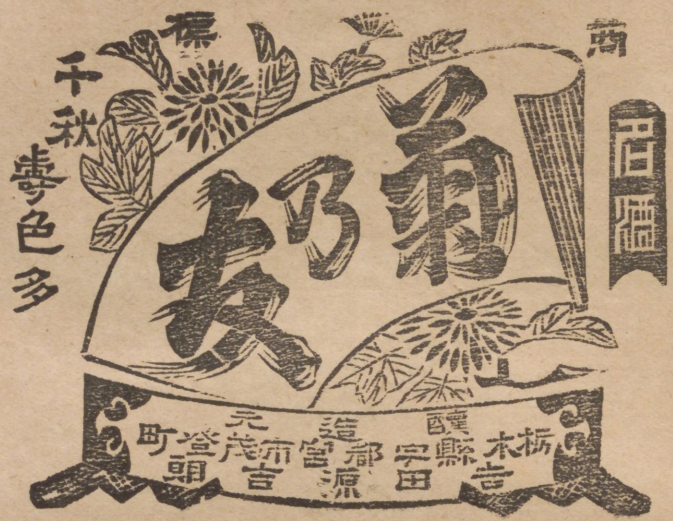 商標
名酒
菊乃友
千秋
壽色多
釀造元
栃木縣宇都宮市茂登町
吉田源吉